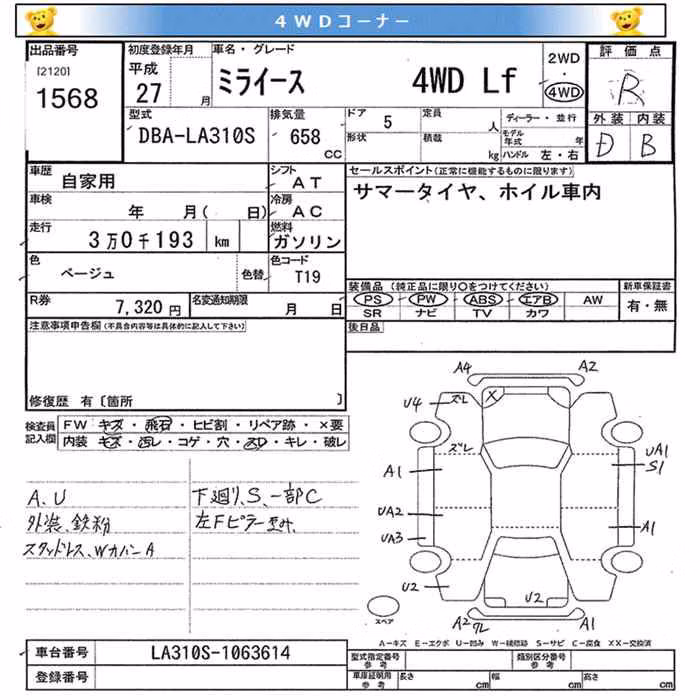 4WDコーナー
出品番号
[2120]
1568
初度登録年月
平成
27 月
車名・グレード
ミライース 4WD Lf
2WD
・
4WD
評価点
R
外装 内装
D B
型式
DBA-LA310S
排気量
658
CC
ドア 5
形状
定員
人
積載
kg
ディーラー・並行
モデル
年式 年
ハンドル 左・右
車歴
自家用
シフト
AT
車検
年 月( 日)
冷房
AC
走行
3万0千193 km
燃料
ガソリン
色
ベージュ
色替
色コード
T19
R券
7,320円
名変通知期限
月 日
セールスポイント(正常に機能するものに限ります)
サマータイヤ、ホイル車内
装備品(純正品に限り〇をつけてください)
PS PW ABS エアB AW
SR ナビ TV カワ
新車保証書
有・無
後日品
注意事項申告欄(不具合内容等は具体的に記入して下さい)
修復歴 有〔箇所 〕
検査員
記入欄
FW キズ・飛石・ヒビ割・リペア跡・×要
内装 キズ・汚レ・コゲ・穴・スレ・キレ・破レ
A、U
外装、鉄粉
スタッドレス、WカバーA
下廻り、S、一部C
左Fピラー歪み、
A4 A2
U4 ズレ X
ズレ
A1
UA1
S1
UA2
A1
UA3
U2
U2
A2 ワレ
A1
スペア
A－キズ E－エクボ U－凹み W－補修跡 S－サビ C－腐食 XX－交換済
車台番号 LA310S-1063614
登録番号
型式指定番号
参考
類別区分番号
参考
車庫証明用
参考
長さ cm
幅 cm
高さ cm